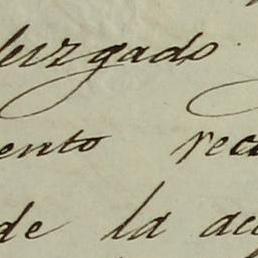 Juzgado
ento rec
de la ac